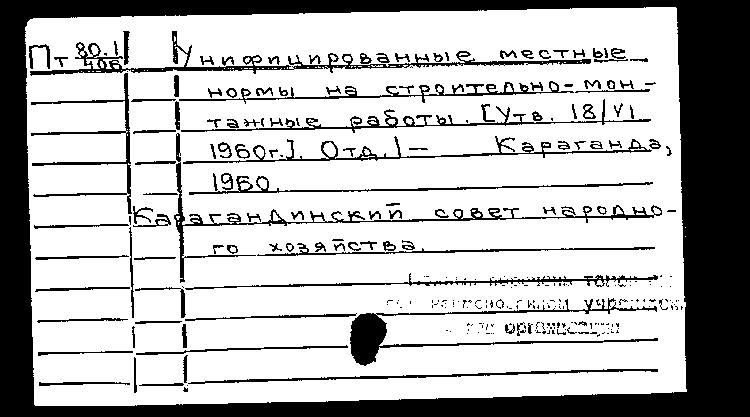 Пт 80.1/406 Унифицированные местные
нормы на строительно-мон-
тажные работы. [Утв. 18/VI
1960г.]. Отд. 1 — Караганда,
1960.
Карагандинский совет народно-
го хозяйства.
перечень томов
учрежден
организации